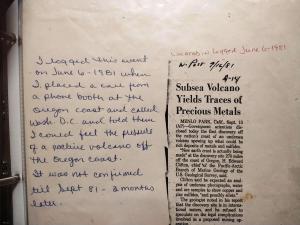 I logged this event
on June 6-1981 when
I placed a call from
a phone booth at the
Oregon coast and called
Wash. D.C. and told them
I could feel the
of a volcano off
the Oregon coast.
It was not confirmed
til Sept 81 - 3 months
later.
logged June 6-1981
W. Post 9/12/81
A-14
Subsea Volcano
Yields Traces of
Precious Metals
MENLO PARK, Calif., Sept. 11
(AP)—Government scientists disclosed
today the first discovery off the
nation's coast of an undersea
volcano spewing up what could be
rich deposits of metals and sulfides.
"New earth crust is actually being
made" at the discovery site 270 miles
off the coast of Oregon, H. Edward
Clifton said, chief of the Pacific-Arctic
Branch of Marine Geology of the
U.S. Geological Survey, said.
Clifton said as reported in analysis
of undersea photographs, water
and ore samples to show copper and
zinc sulfides, "and possibly silver."
The geologist noted in his report
that the discovery site is in international
waters, and he refused to
speculate on the legal complications
involved in a proposed mining of